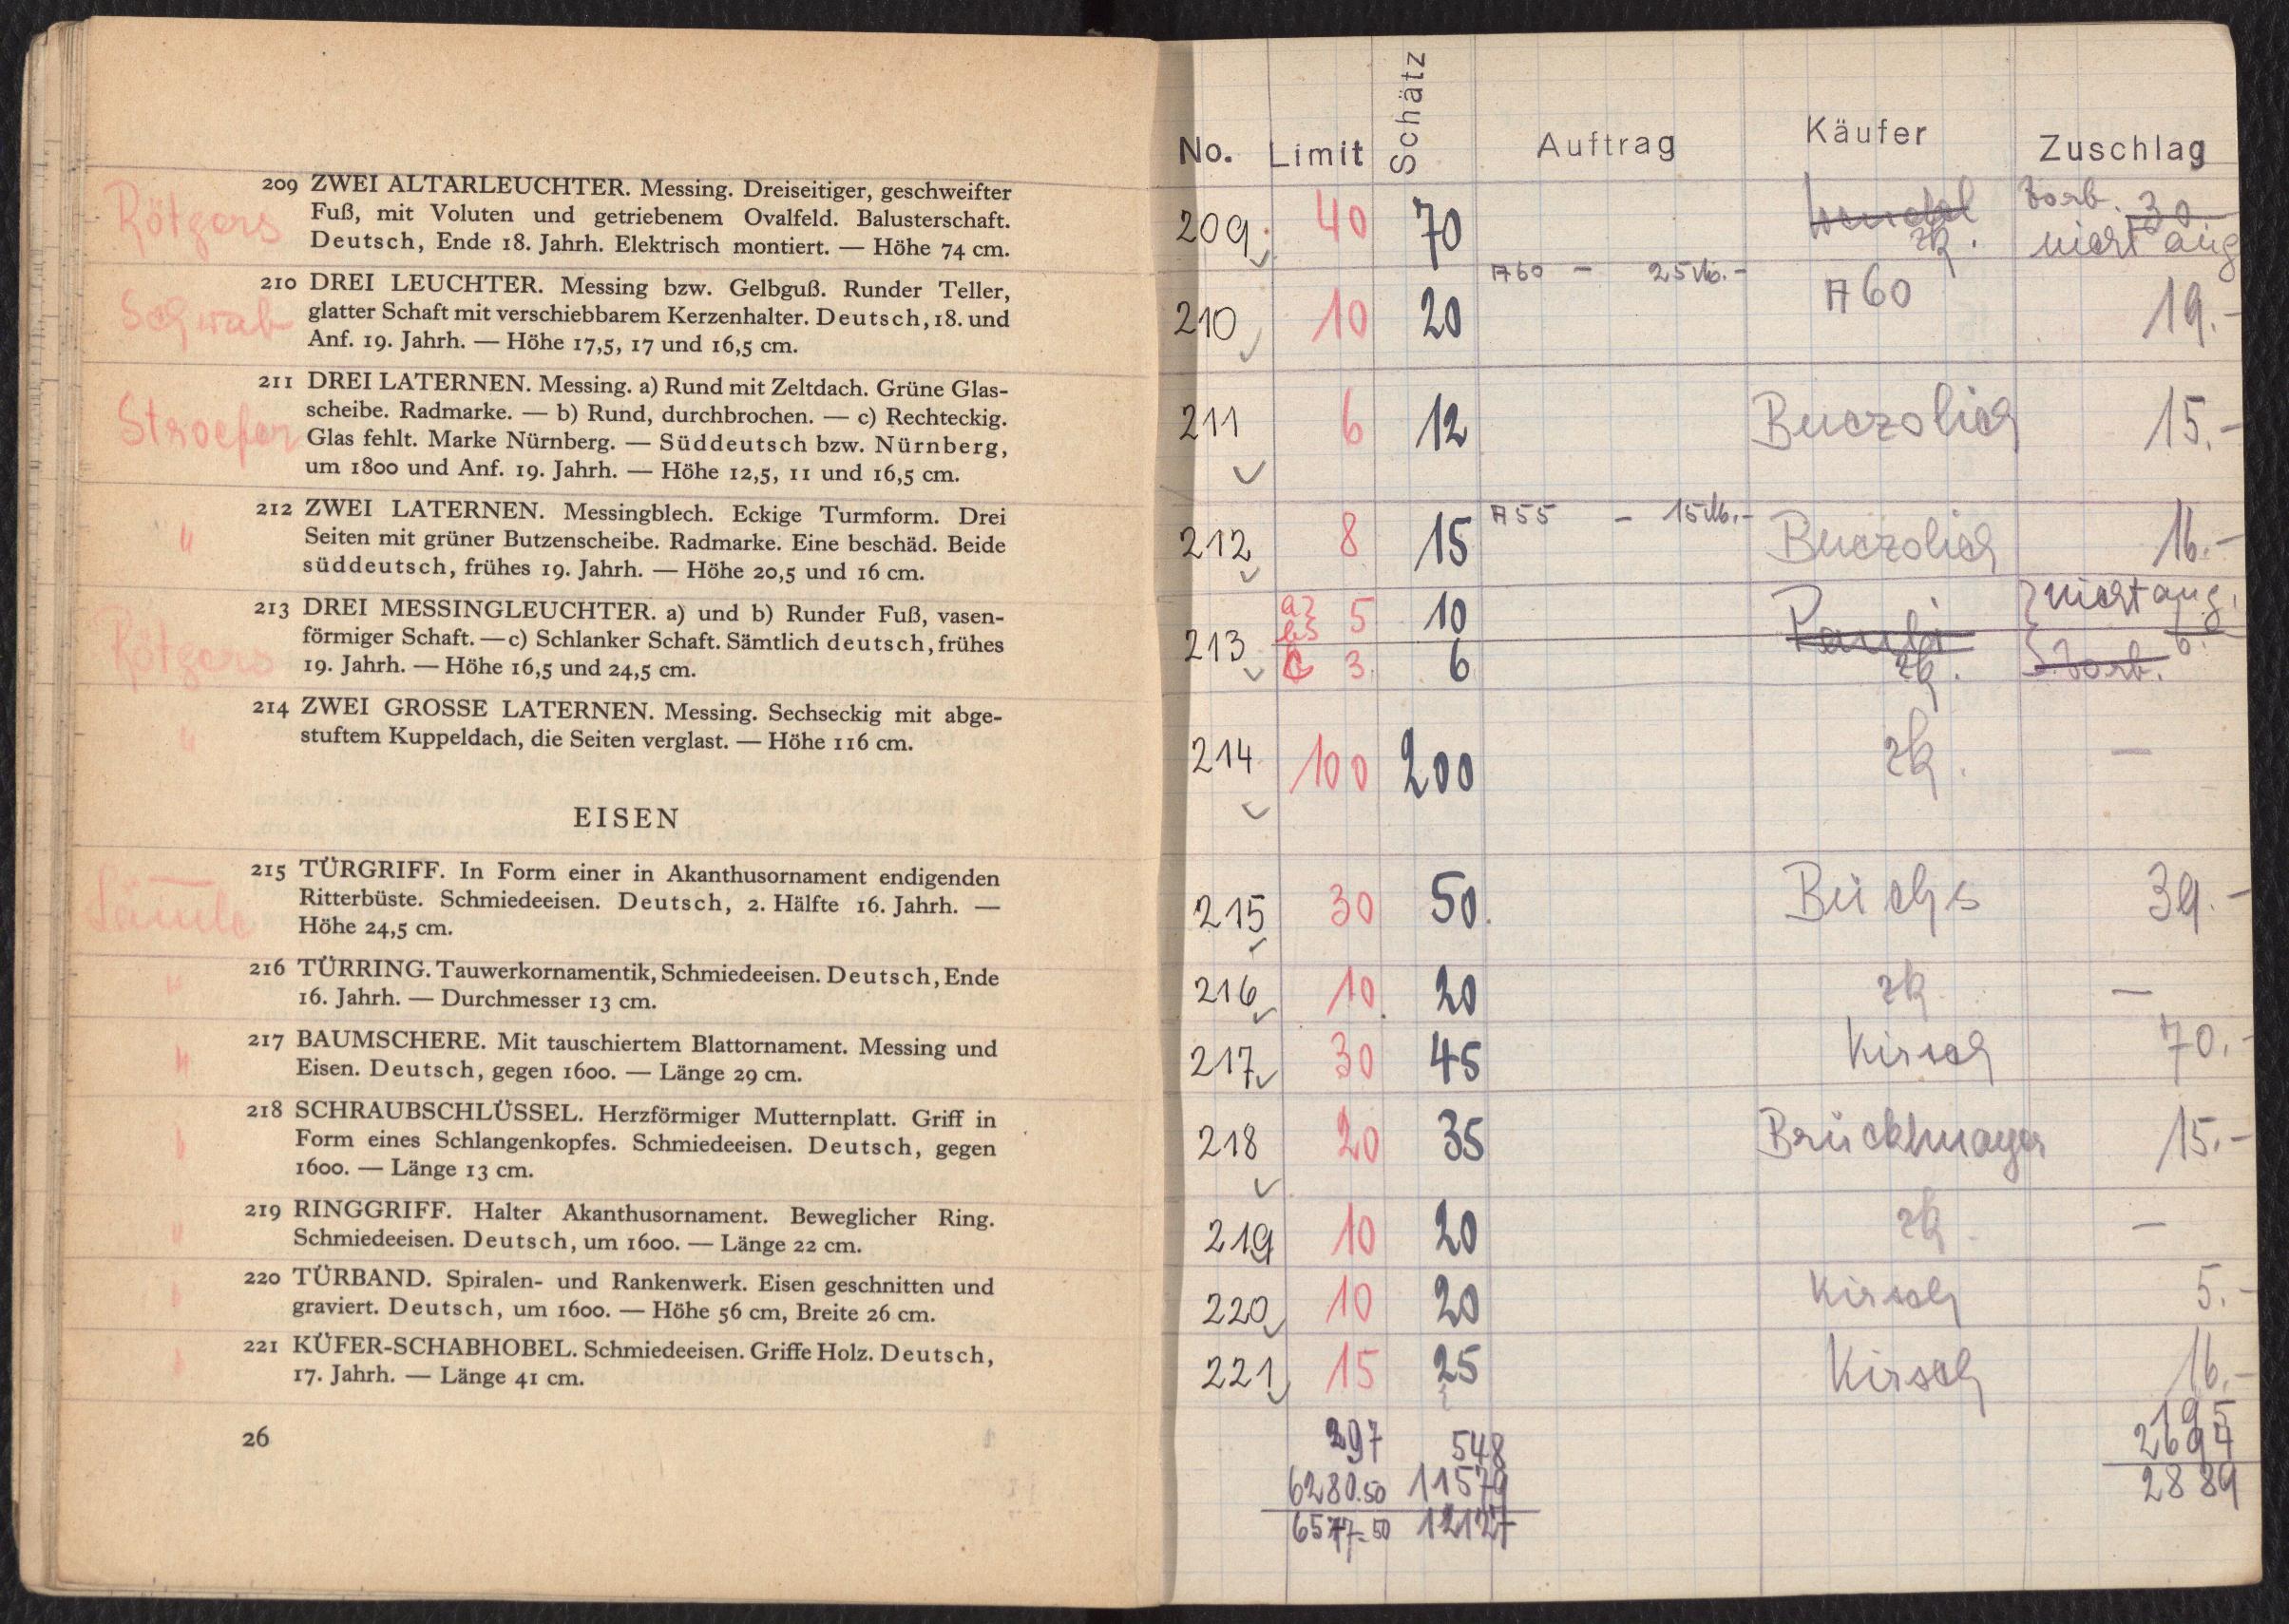 209 ZWEI ALTARLEUCHTER. Messing. Dreiseitiger, geschweifter
Rötgers
Fuß, mit Voluten und getriebenem Ovalfeld. Balusterschaft.
Deutsch, Ende 18. Jahrh. Elektrisch montiert. — Höhe 74 cm.
210 DREI LEUCHTER. Messing bzw. Gelbguß. Runder Teller,
Schwab
glatter Schaft mit verschiebbarem Kerzenhalter. Deutsch, 18. und
Anf. 19. Jahrh. — Höhe 17,5, 17 und 16,5 cm.
211 DREI LATERNEN. Messing. a) Rund mit Zeltdach. Grüne Glas-
scheibe. Radmarke. — b) Rund, durchbrochen. — c) Rechteckig.
Stroefer
Glas fehlt. Marke Nürnberg. — Süddeutsch bzw. Nürnberg,
um 1800 und Anf. 19. Jahrh. — Höhe 12,5, 11 und 16,5 cm.
212 ZWEI LATERNEN. Messingblech. Eckige Turmform. Drei
"
Seiten mit grüner Butzenscheibe. Radmarke. Eine beschäd. Beide
süddeutsch, frühes 19. Jahrh. — Höhe 20,5 und 16 cm.
213 DREI MESSINGLEUCHTER. a) und b) Runder Fuß, vasen-
förmiger Schaft. — c) Schlanker Schaft. Sämtlich deutsch, frühes
Rötgers
19. Jahrh. — Höhe 16,5 und 24,5 cm.
214 ZWEI GROSSE LATERNEN. Messing. Sechseckig mit abge-
"
stuftem Kuppeldach, die Seiten verglast. — Höhe 116 cm.
EISEN
215 TÜRGRIFF. In Form einer in Akanthusornament endigenden
Ritterbüste. Schmiedeeisen. Deutsch, 2. Hälfte 16. Jahrh. —
Höhe 24,5 cm.
216 TÜRRING. Tauwerkornamentik, Schmiedeeisen. Deutsch, Ende
"
16. Jahrh. — Durchmesser 13 cm.
217 BAUMSCHERE. Mit tauschiertem Blattornament. Messing und
"
Eisen. Deutsch, gegen 1600. — Länge 29 cm.
218 SCHRAUBSCHLÜSSEL. Herzförmiger Mutternplatt. Griff in
"
Form eines Schlangenkopfes. Schmiedeeisen. Deutsch, gegen
1600. — Länge 13 cm.
219 RINGGRIFF. Halter Akanthusornament. Beweglicher Ring.
"
Schmiedeeisen. Deutsch, um 1600. — Länge 22 cm.
220 TÜRBAND. Spiralen- und Rankenwerk. Eisen geschnitten und
"
graviert. Deutsch, um 1600. — Höhe 56 cm, Breite 26 cm.
221 KÜFER-SCHABHOBEL. Schmiedeeisen. Griffe Holz. Deutsch,
"
17. Jahrh. — Länge 41 cm.
26
No. Limit Schätz Auftrag Käufer Zuschlag
209 40 70 zk. Vorb. 30 nicht ang
A60 - 25 M.-
210 10 20 A60 19.-
211 6 12 Buczolich 15.-
A55 - 15 M.-
212 8 15 Buczolich 16.-
213 a) b) 5 10 nicht ang.
c 3. 6 zk. Vorb. 6.
214 100 200 zk. —
215 30 50. Büchs 39.-
216 10. 20 zk —
217 30 45 Kirsch 70.-
218 20 35 Brücklmayer 15.-
219 10 20 zk. —
220 10 20 Kirsch 5.-
221 15 25 Kirsch 16.-
297 548 195
6280.50 11579 2694
6577.50 12127 2889